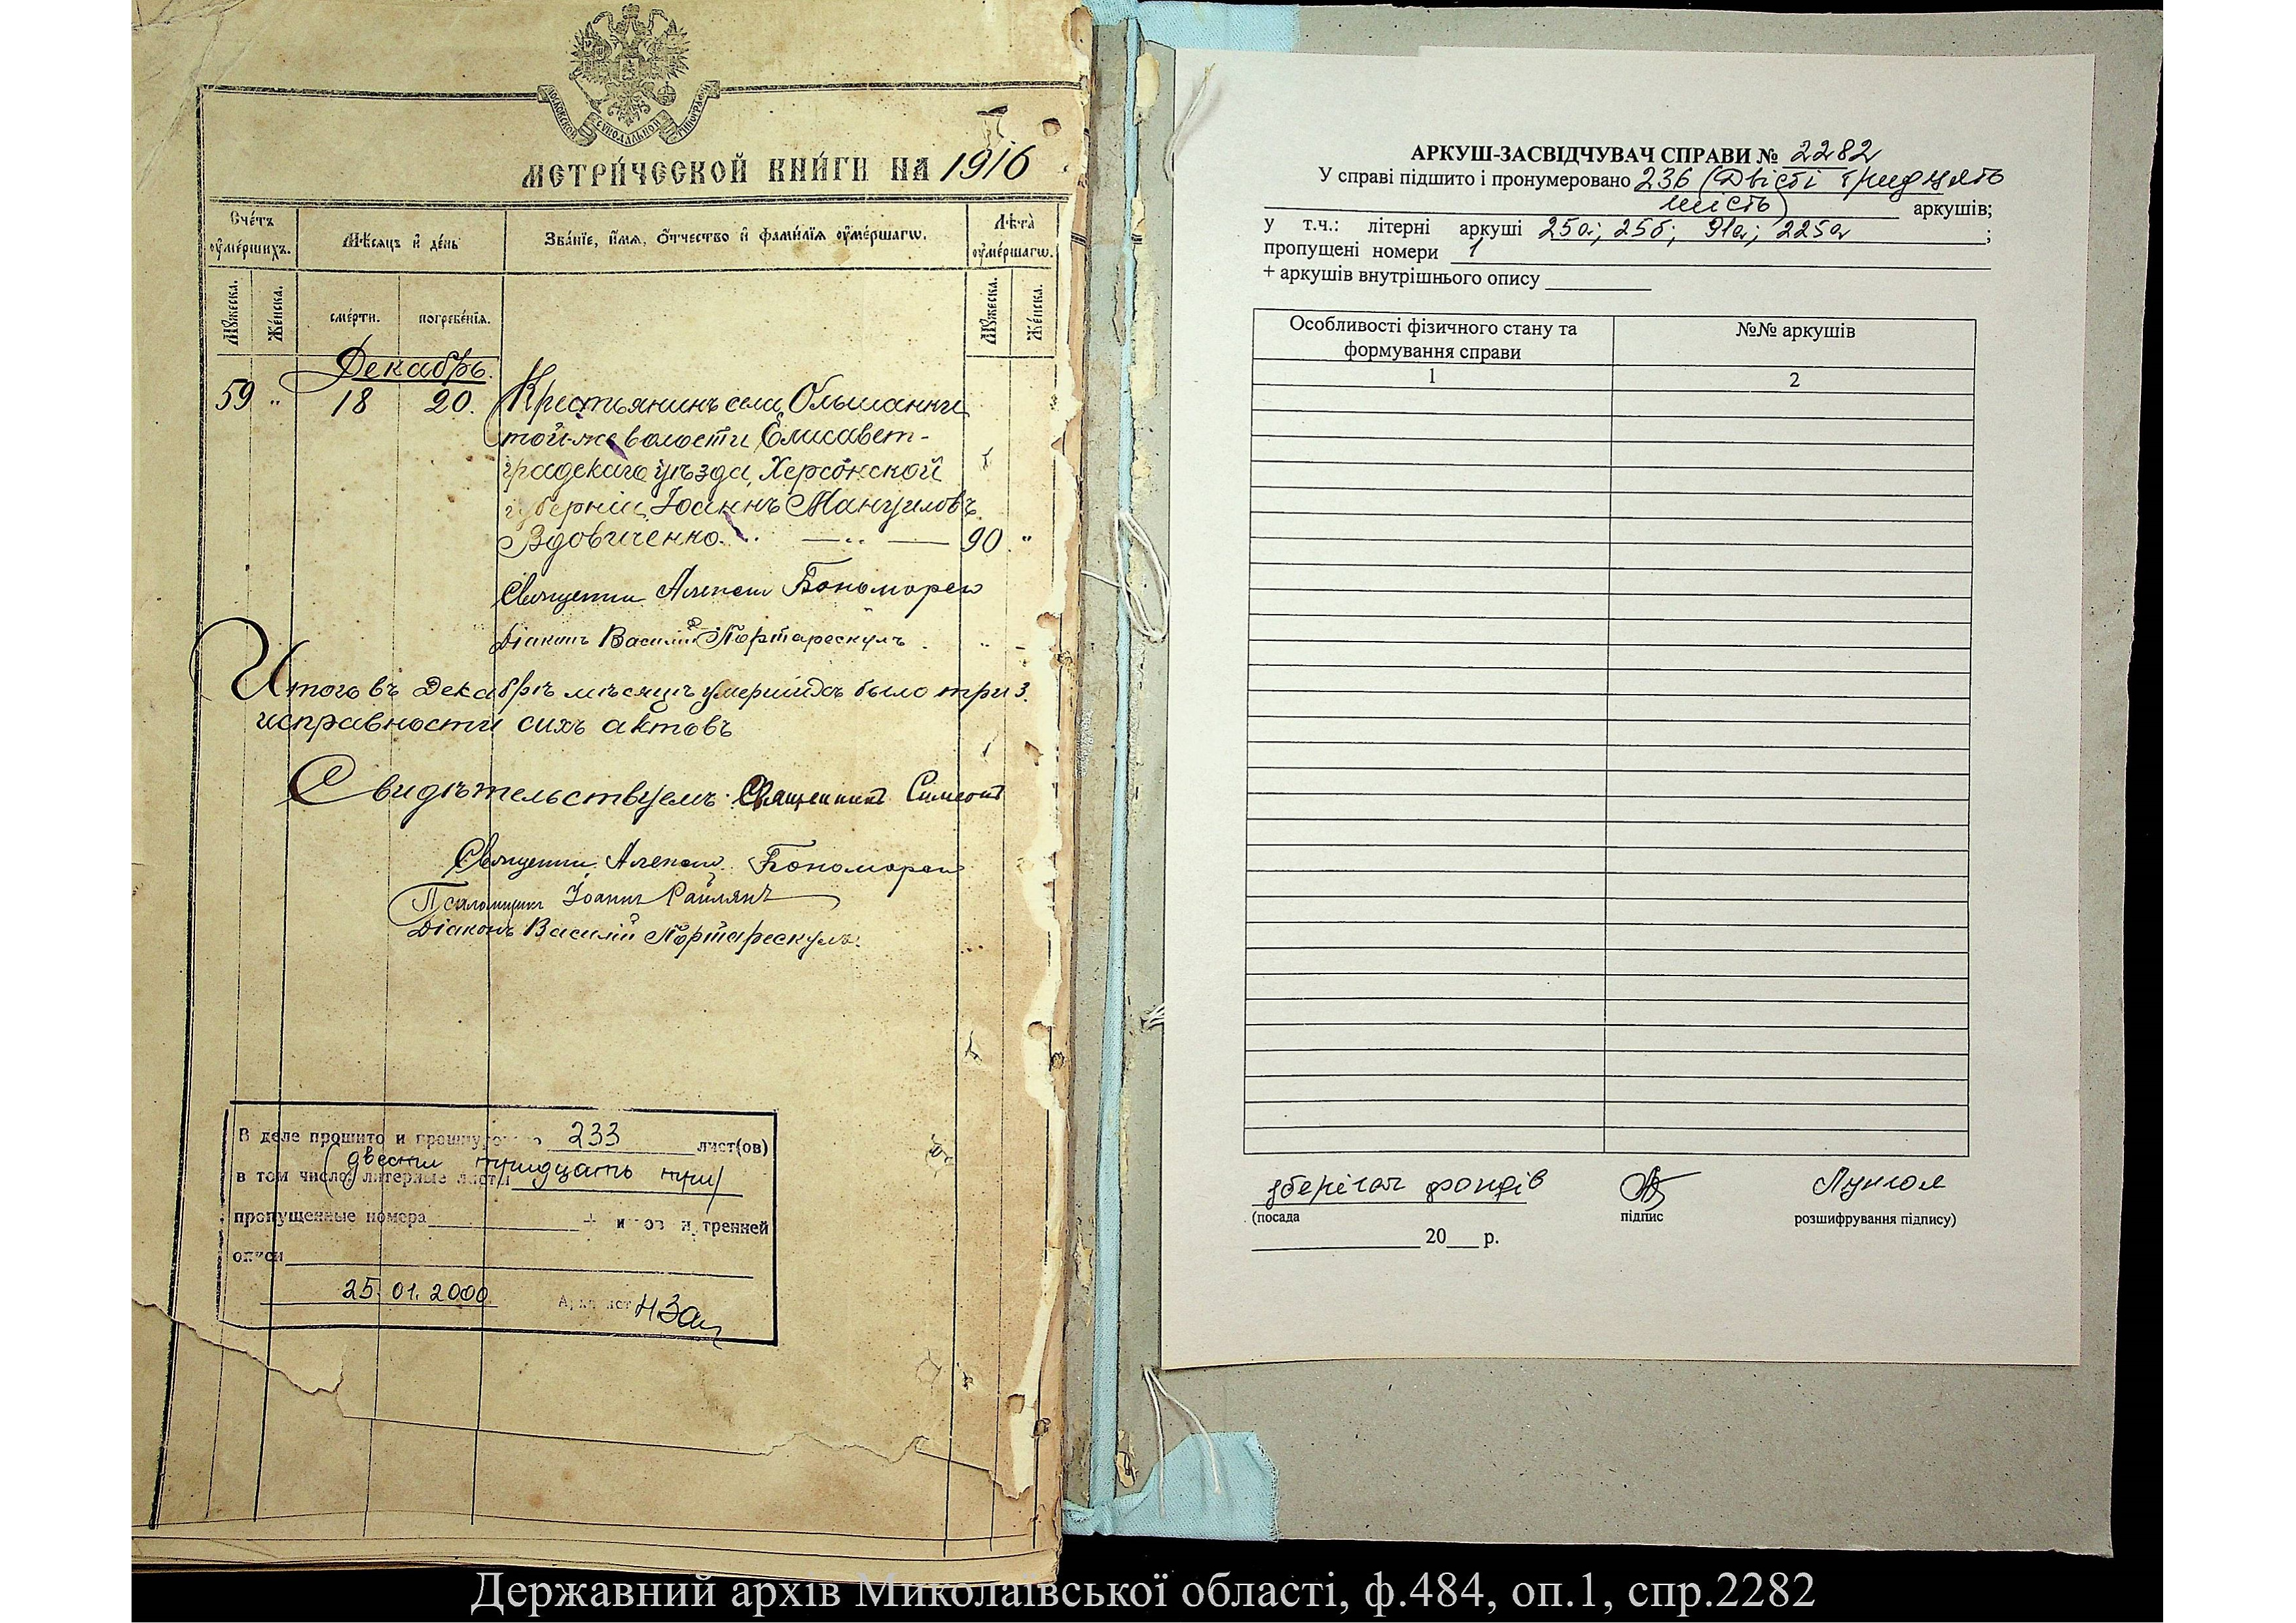 МЕТРИ́ЧЕСКОЙ КНИ́ГИ НА 1916
Сче́тъ ᲂу҆ме́ршихъ.
Мѣ́сяцъ и҆ де́нь
Зва́нїе, и҆́мя, ѻ҆́тчество и҆ фами́лїя ᲂу҆ме́ршагѡ.
Лѣ́та ᲂу҆ме́ршагѡ.
Мꙋ́жеска.
Же́нска.
сме́рти.
погребе́нїя.
Мꙋ́жеска.
Же́нска.
Декабрь.
59 " 18 20. Крестьянинъ села Ольшанки
той-же волости Елисавет-
градскаго уѣзда, Херсонской
губерніи, Іоаннъ Мануиловъ
Вдовиченко. 90. "
Діаконъ Василій Портарескулъ
Итого въ Декабрѣ мѣсяцѣ умершихъ было три 3.
исправности сихъ актовъ
Свидѣтельствуемъ: Священникъ Симеонъ
Псаломщикъ Іоаннъ Раилянъ
Діаконъ Василій Портарескулъ.
В деле прошито и пронумеровано 233 лист(ов)
(двести тридцать три)
в том числе: литерные листы
пропущенные номера + листов внутренней
описи
25.01.2000 Архивист
АРКУШ-ЗАСВІДЧУВАЧ СПРАВИ № 2282
У справі підшито і пронумеровано 236 (Двісті тридцять
шість) аркушів;
у т.ч.: літерні аркуші 25а; 25б; 91а; 225а ;
пропущені номери 1
+ аркушів внутрішнього опису
Особливості фізичного стану та формування справи
№№ аркушів
1 2
зберігач фондів
(посада підпис розшифрування підпису)
20 р.
Державний архів Миколаївської області, ф.484, оп.1, спр.2282